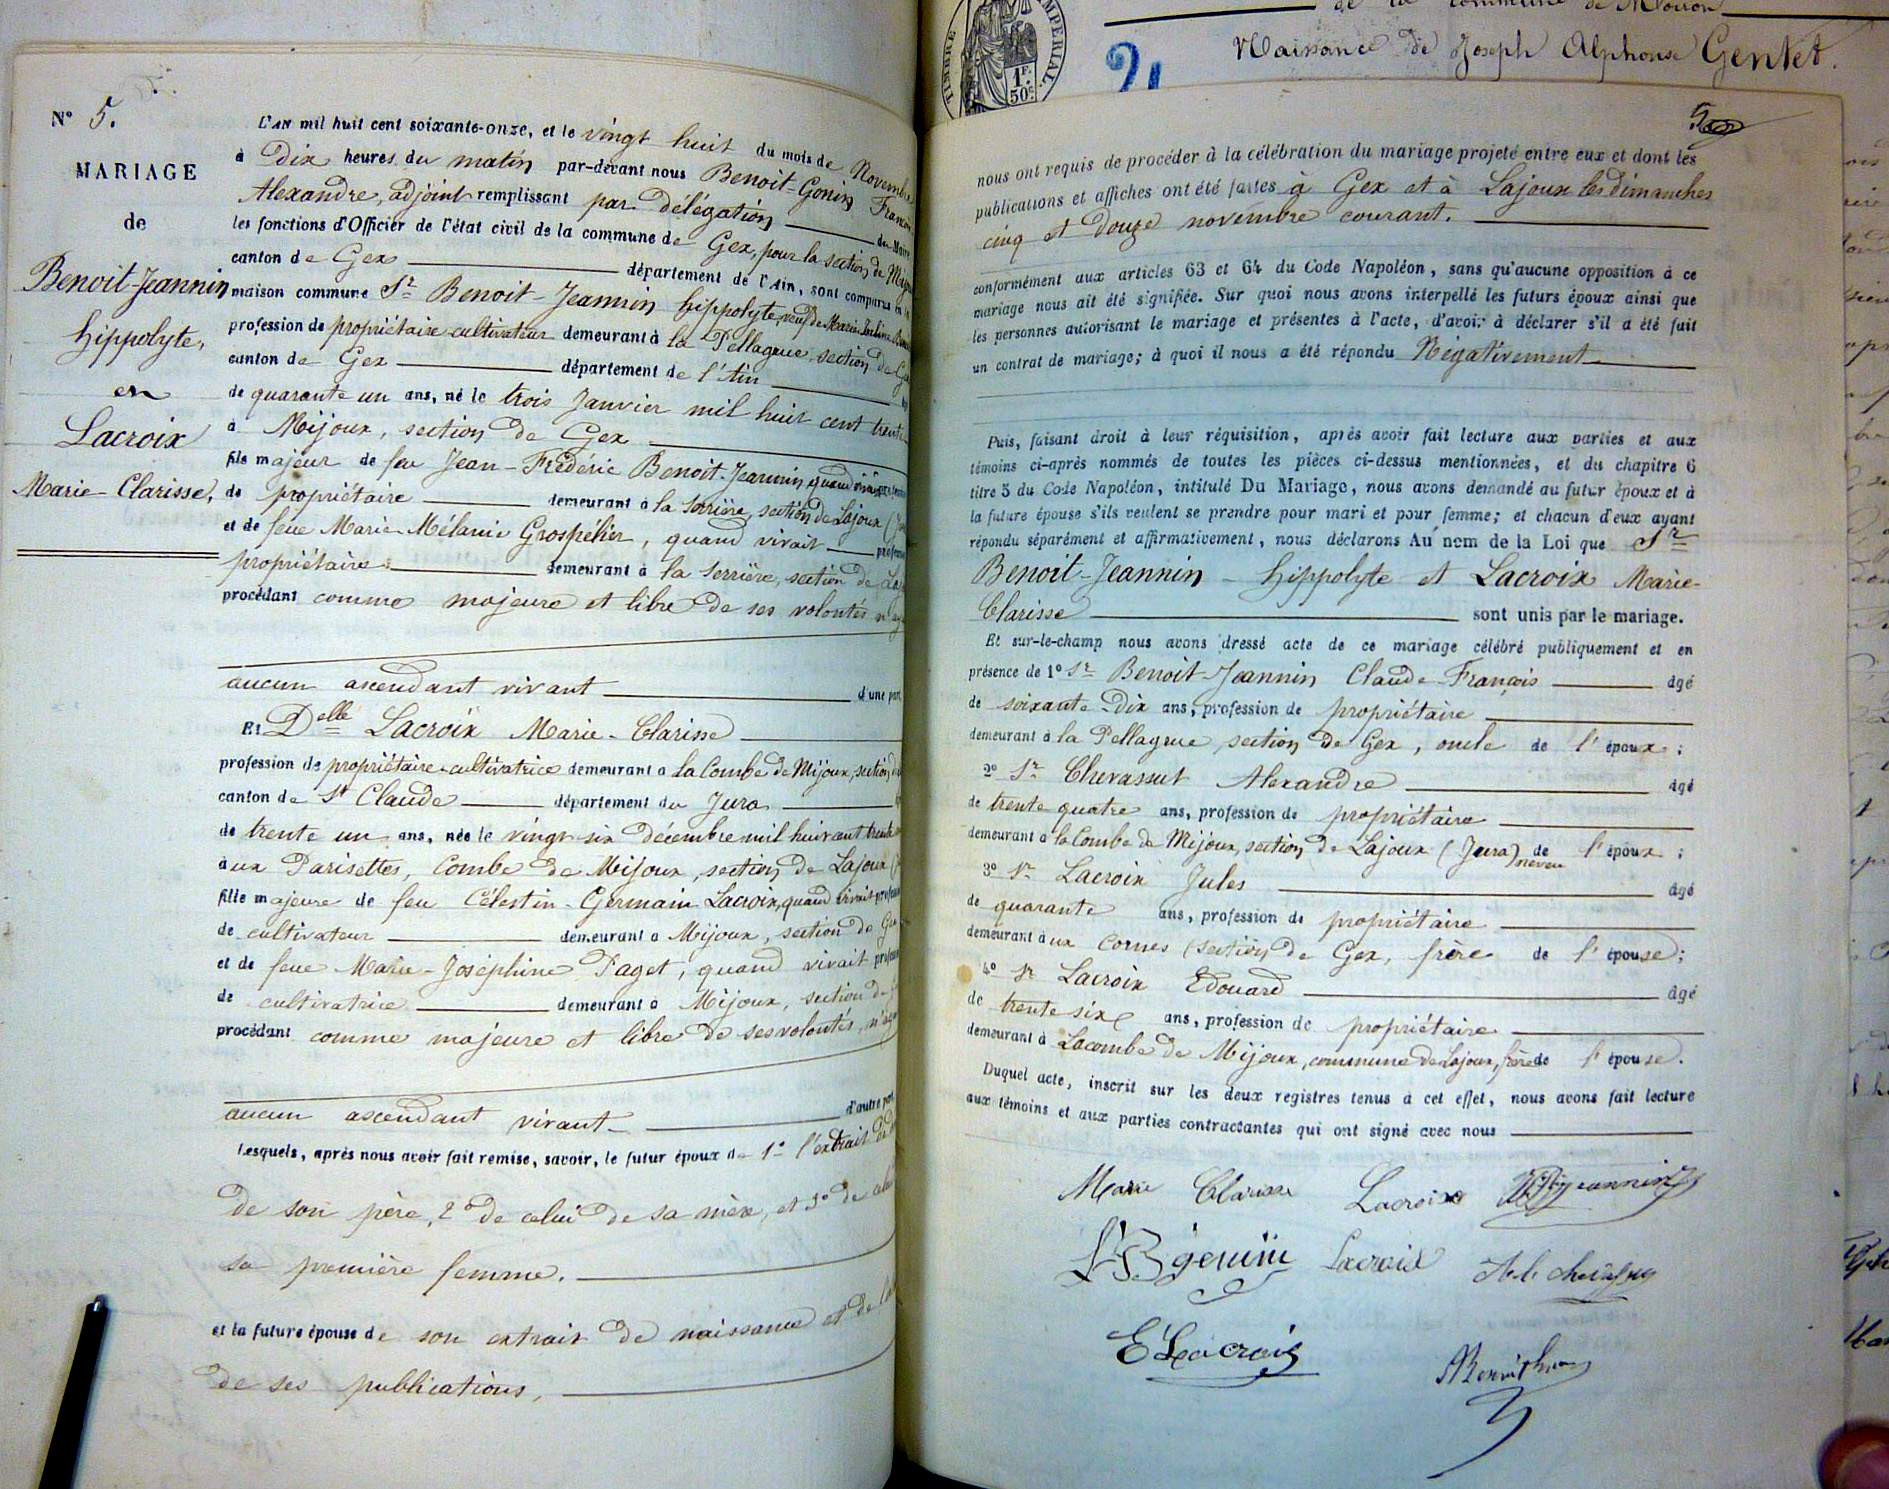 N° 5.
MARIAGE
de
Benoit-Jeannin
hippolyte,
en
Lacroix
Marie-Clarisse,
L'AN mil huit cent soixante-onze, et le vingt huit du mois de Novembre
à Dix heures du matin par-devant nous Benoit-Gonin François
Alexandre, adjoint remplissant par délégation du Maire
les fonctions d'Officier de l'état civil de la commune de Gex, pour la section de Mijoux
canton de Gex département de l'Ain, sont comparus en la
maison commune Sr Benoit-Jeannin hippolyte, veuf de Marie
profession de propriétaire cultivateur demeurant à la Pellagrue, section de Gex
canton de Gex département de l'Ain
de quarante un ans, né le trois Janvier mil huit cent trente
à Mijoux, section de Gex
fils majeur de feu Jean-Frédéric Benoit-Jeannin quand vivait
de propriétaire demeurant à la Serrière, section de Lajoux
et de feue Marie-Mélanie Grospélier, quand vivait
propriétaire demeurant à la Serrière, section de
procédant comme majeure et libre de ses volontés
aucun ascendant vivant d'une part
Et Delle Lacroix Marie-Clarisse
profession de propriétaire-cultivatrice demeurant à la Combe de Mijoux, section
canton de St Claude département du Jura
de trente un ans, née le vingt six décembre mil huit cent trente
à ux Parisettes, Combe de Mijoux, section de Lajoux
fille majeure de feu Célestin-Germain Lacroix, quand vivait
de cultivateur demeurant à Mijoux, section de Gex
et de feue Marie-Joséphine Paget, quand vivait
de cultivatrice demeurant à Mijoux, section de
procédant comme majeure et libre de ses volontés,
aucun ascendant vivant d'autre part
Lesquels, après nous avoir fait remise, savoir, le futur époux de 1° l'extrait
de son père, 2° de celui de sa mère, et 3° de celui
sa première femme.
et la future épouse de son extrait de naissance et de
de ses publications,
TIMBRE IMPÉRIAL.
1 F.
50 c.
21
de la commune de
Naissance de Joseph Alphonse Gentet.
nous ont requis de procéder à la célébration du mariage projeté entre eux et dont les
publications et affiches ont été faites à Gex et à Lajoux les dimanches
cinq et douze novembre courant.
conformément aux articles 63 et 64 du Code Napoléon, sans qu'aucune opposition à ce
mariage nous ait été signifiée. Sur quoi nous avons interpellé les futurs époux ainsi que
les personnes autorisant le mariage et présentes à l'acte, d'avoir à déclarer s'il a été fait
un contrat de mariage; à quoi il nous a été répondu Négativement
Puis, faisant droit à leur réquisition, après avoir fait lecture aux parties et aux
témoins ci-après nommés de toutes les pièces ci-dessus mentionnées, et du chapitre 6
titre 5 du Code Napoléon, intitulé Du Mariage, nous avons demandé au futur époux et à
la future épouse s'ils veulent se prendre pour mari et pour femme; et chacun d'eux ayant
répondu séparément et affirmativement, nous déclarons Au nom de la Loi que Sr
Benoit-Jeannin - hippolyte et Lacroix Marie-
Clarisse sont unis par le mariage.
Et sur-le-champ nous avons dressé acte de ce mariage célébré publiquement et en
présence de 1° Sr Benoit-Jeannin Claude-François âgé
de soixante-Dix ans, profession de propriétaire
demeurant à la Pellagrue section de Gex, oncle de l'époux;
2° Sr Chevassut Alexandre âgé
de trente quatre ans, profession de propriétaire
demeurant à la Combe de Mijoux, section de Lajoux (Jura) neveu de l'époux;
3° Sr Lacroix Jules âgé
de quarante ans, profession de propriétaire
demeurant à ux Cornes section de Gex, frère de l'épouse;
4° Sr Lacroix Edouard âgé
de trente six ans, profession de propriétaire
demeurant à Lacombe de Mijoux, commune de Lajoux, frère de l'épouse.
Duquel acte, inscrit sur les deux registres tenus à cet effet, nous avons fait lecture
aux témoins et aux parties contractantes qui ont signé avec nous
Marie Clarisse Lacroix
Lacroix
E Lacroix